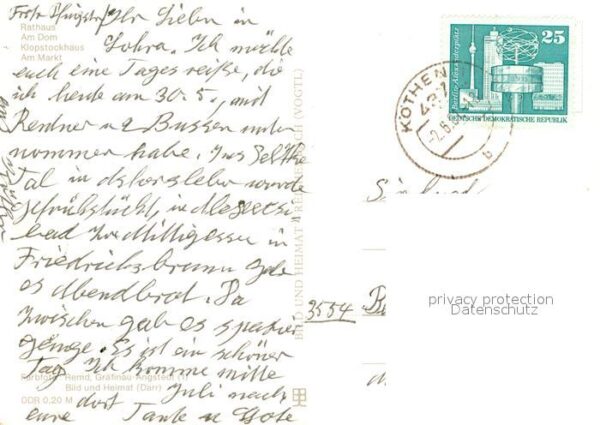 Frohe Pfingsten
Rathaus
Am Dom
Klopstockhaus
Am Markt
Ihr Lieben in
Lohra. Ich möchte
euch eine Tages reiße, die
ich heute am 30.5. mit
Rentner in 2 Bussen unter
nommer habe. Ins
Tal in wurde
gefrühstückt, in
bad zu Mittigessen in
Friedrichsbrunn gab
es Abendbrot. Da
zwischen gab es spazier
gänge. Es ist ein schöner
Tag Ich komme mitte
Juli nach
dort
eure Tante u Gote
Farbfoto: Remd, Gräfinau-Angstedt (1)
Bild und Heimat (Darr)
DDR 0,20 M
BILD UND HEIMAT REICHENBACH (VOGTL)
Berlin-Alexanderplatz
25
DEUTSCHE DEMOKRATISCHE REPUBLIK
KÖTHEN
3554
privacy protection
Datenschutz